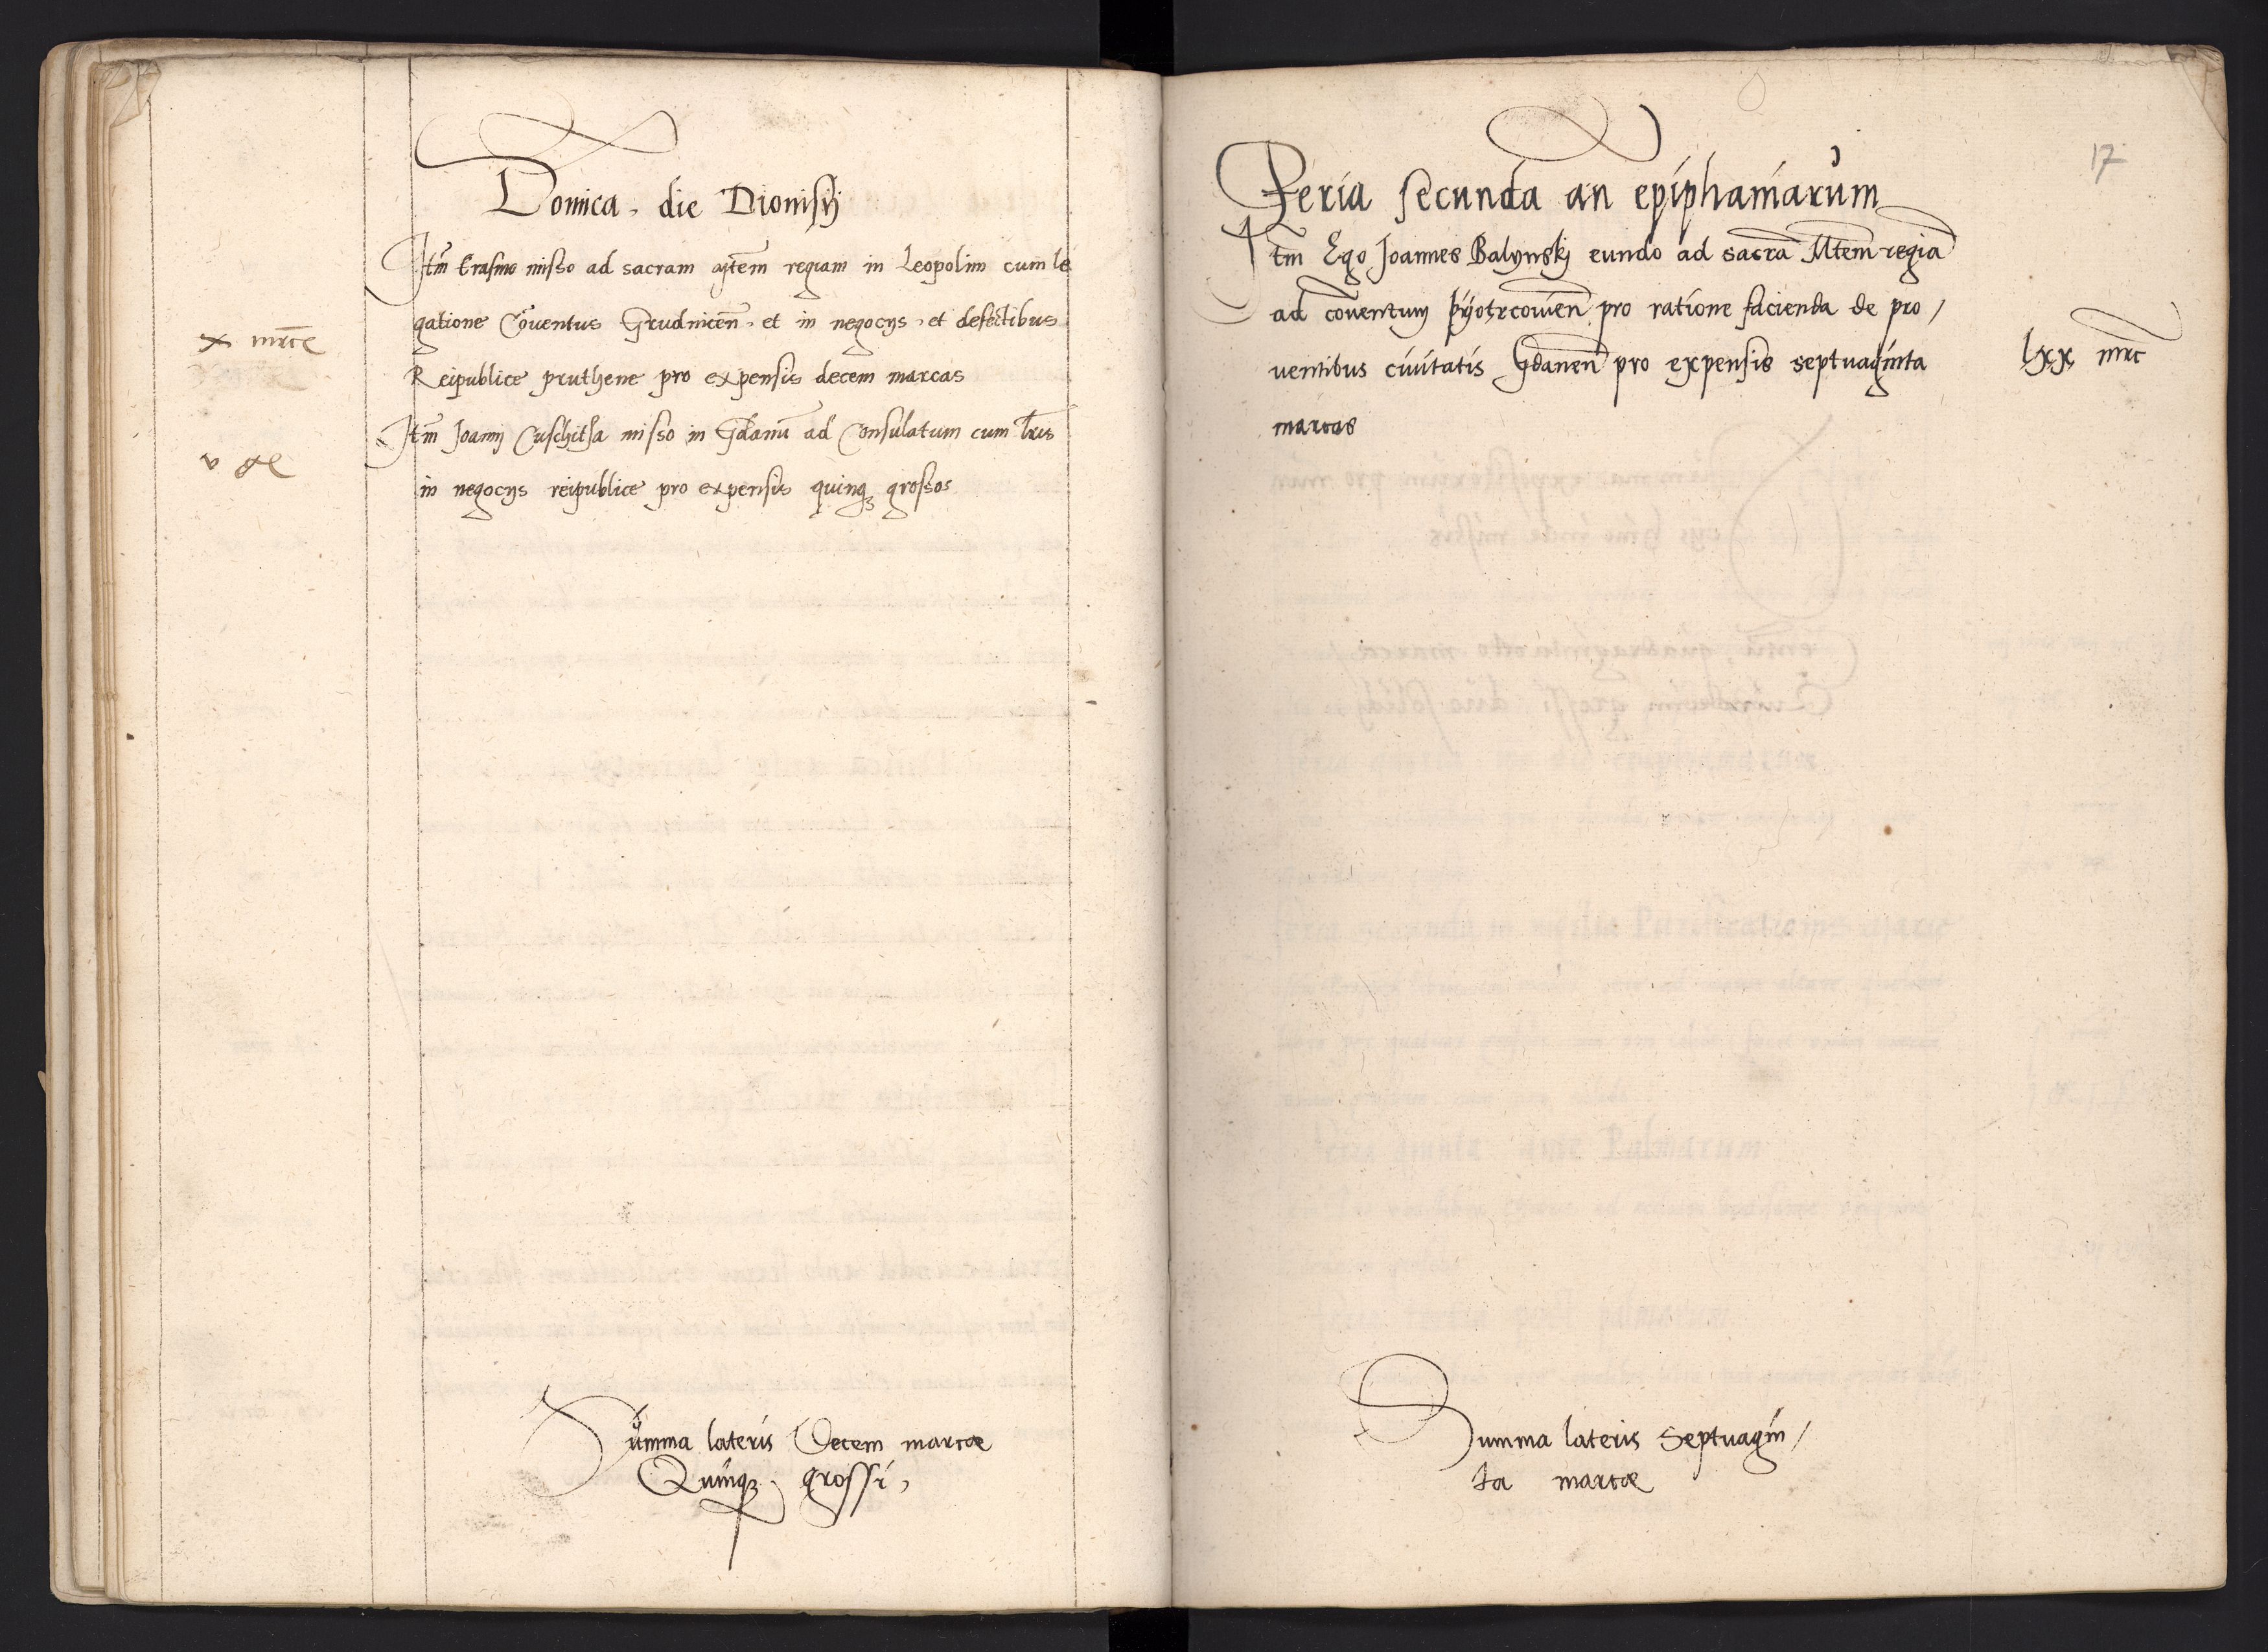 Domica. die Dionisij
Itm̄ Erasmo misso ad sacram mtēm regiam in Leopolim cum le
gatione Cōventus Grudnicen̄. et in negocijs. et defectibus
x mrce
Reipublice pruthene pro expensis decem marcas
Itm̄ Joanni Cuschitsa misso in Gdanū ad Consulatum cum lr̄is
v gr
in negocijs reipublice pro expensis quinq₃ grossos
Summa lateris Decem marcæ
Quinq₃. grossi,
17
Feria secunda an epiphaniarum
Itm̄ Ego Joannes Balynskj eundo ad sacrā Mtem̄ regiā
ad cōventum pyotrcovien̄ pro ratione facienda de pro /
lxx mrc
ventibus civitatis Gdanen̄ pro expensis septuaginta
marcas
Summa lateris Septuagin /
ta marcæ